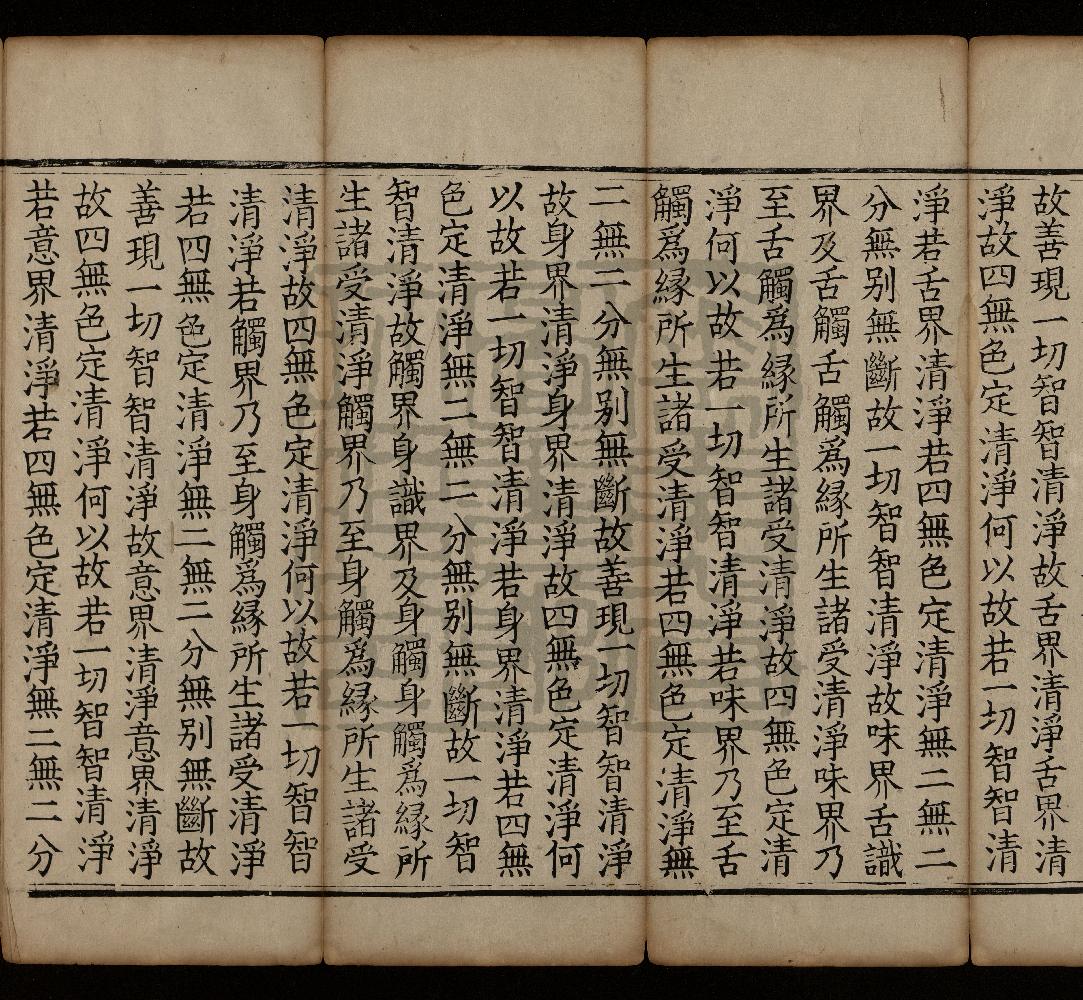 故善現一切智智清淨故舌界清淨舌界清
淨故四無色定清淨何以故若一切智智清
淨若舌界清淨若四無色定清淨無二無二
分無别無斷故一切智智清淨故味界舌識
界及舌觸舌觸爲緣所生諸受清淨味界乃
至舌觸爲緣所生諸受清淨故四無色定清
淨何以故若一切智智清淨若味界乃至舌
觸爲緣所生諸受清淨若四無色定清淨無
二無二分無别無斷故善現一切智智清淨
故身界清淨身界清淨故四無色定清淨何
以故若一切智智清淨若身界清淨若四無
色定清淨無二無二分無别無斷故一切智
智清淨故觸界身識界及身觸身觸爲緣所
生諸受清淨觸界乃至身觸爲緣所生諸受
清淨故四無色定清淨何以故若一切智智
清淨若觸界乃至身觸爲緣所生諸受清淨
若四無色定清淨無二無二分無别無斷故
善現一切智智清淨故意界清淨意界清淨
故四無色定清淨何以故若一切智智清淨
若意界清淨若四無色定清淨無二無二分